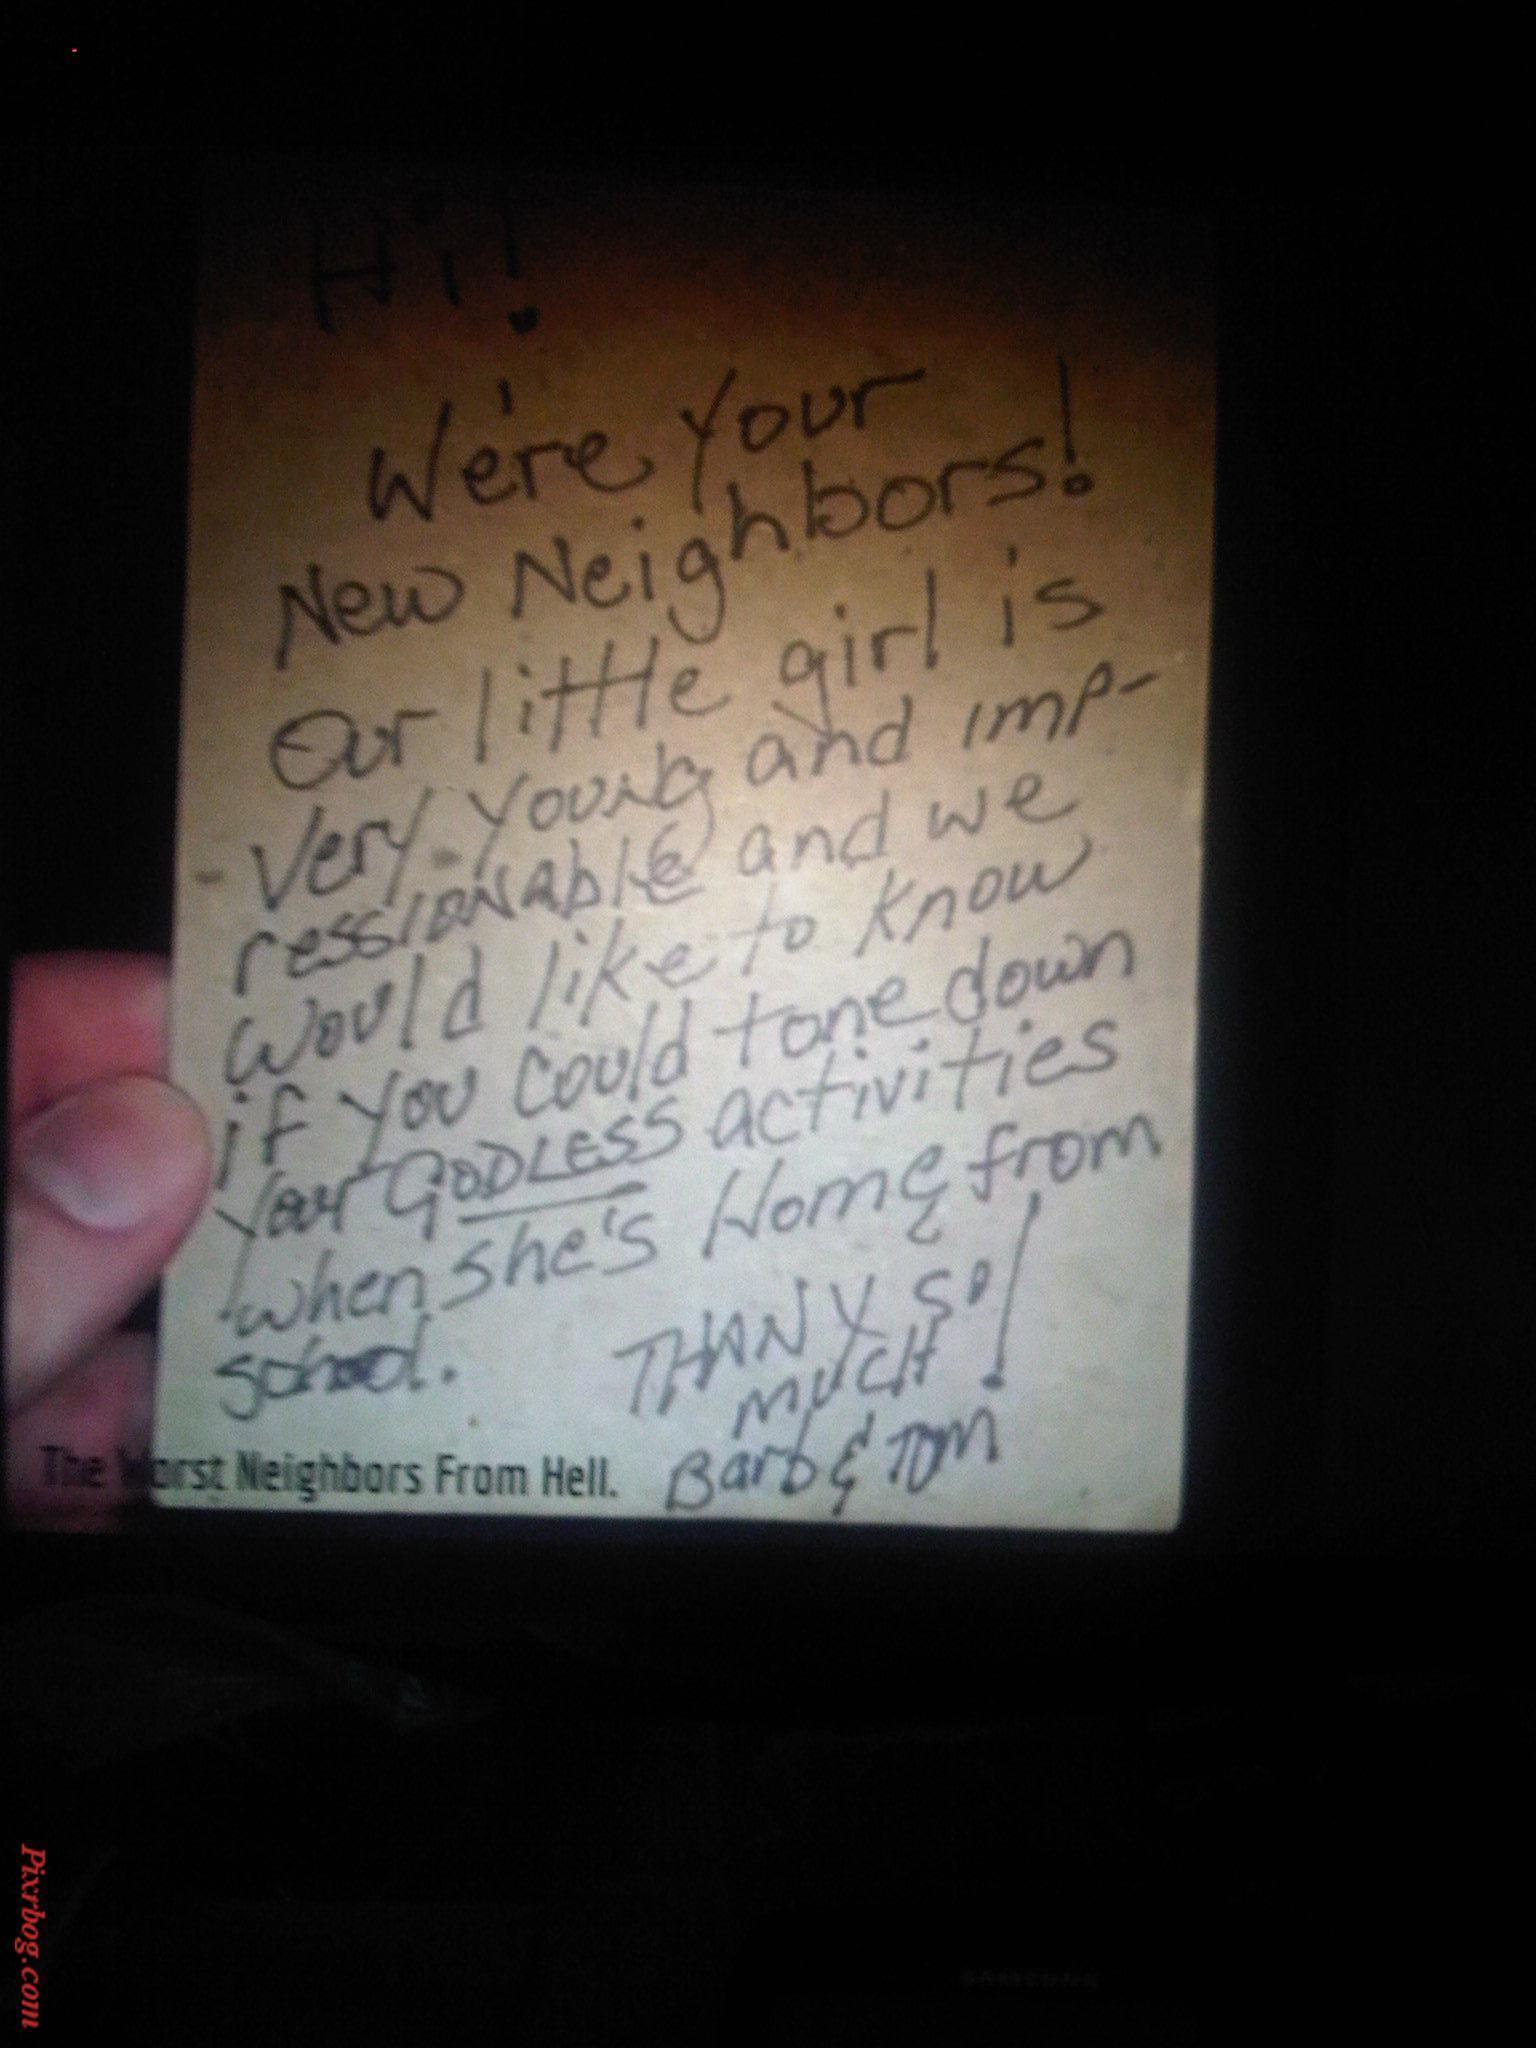 Hi!
We're your
New Neighbors!
Our little girl is
very young and imp-
ressionable and we
would like to know
if you could tone down
your GODLESS activities
when she's Home from
school.
THANX SO
MUCH!
Barb & Tom
The Worst Neighbors From Hell.
SAMSUNG
Pixrbog.com